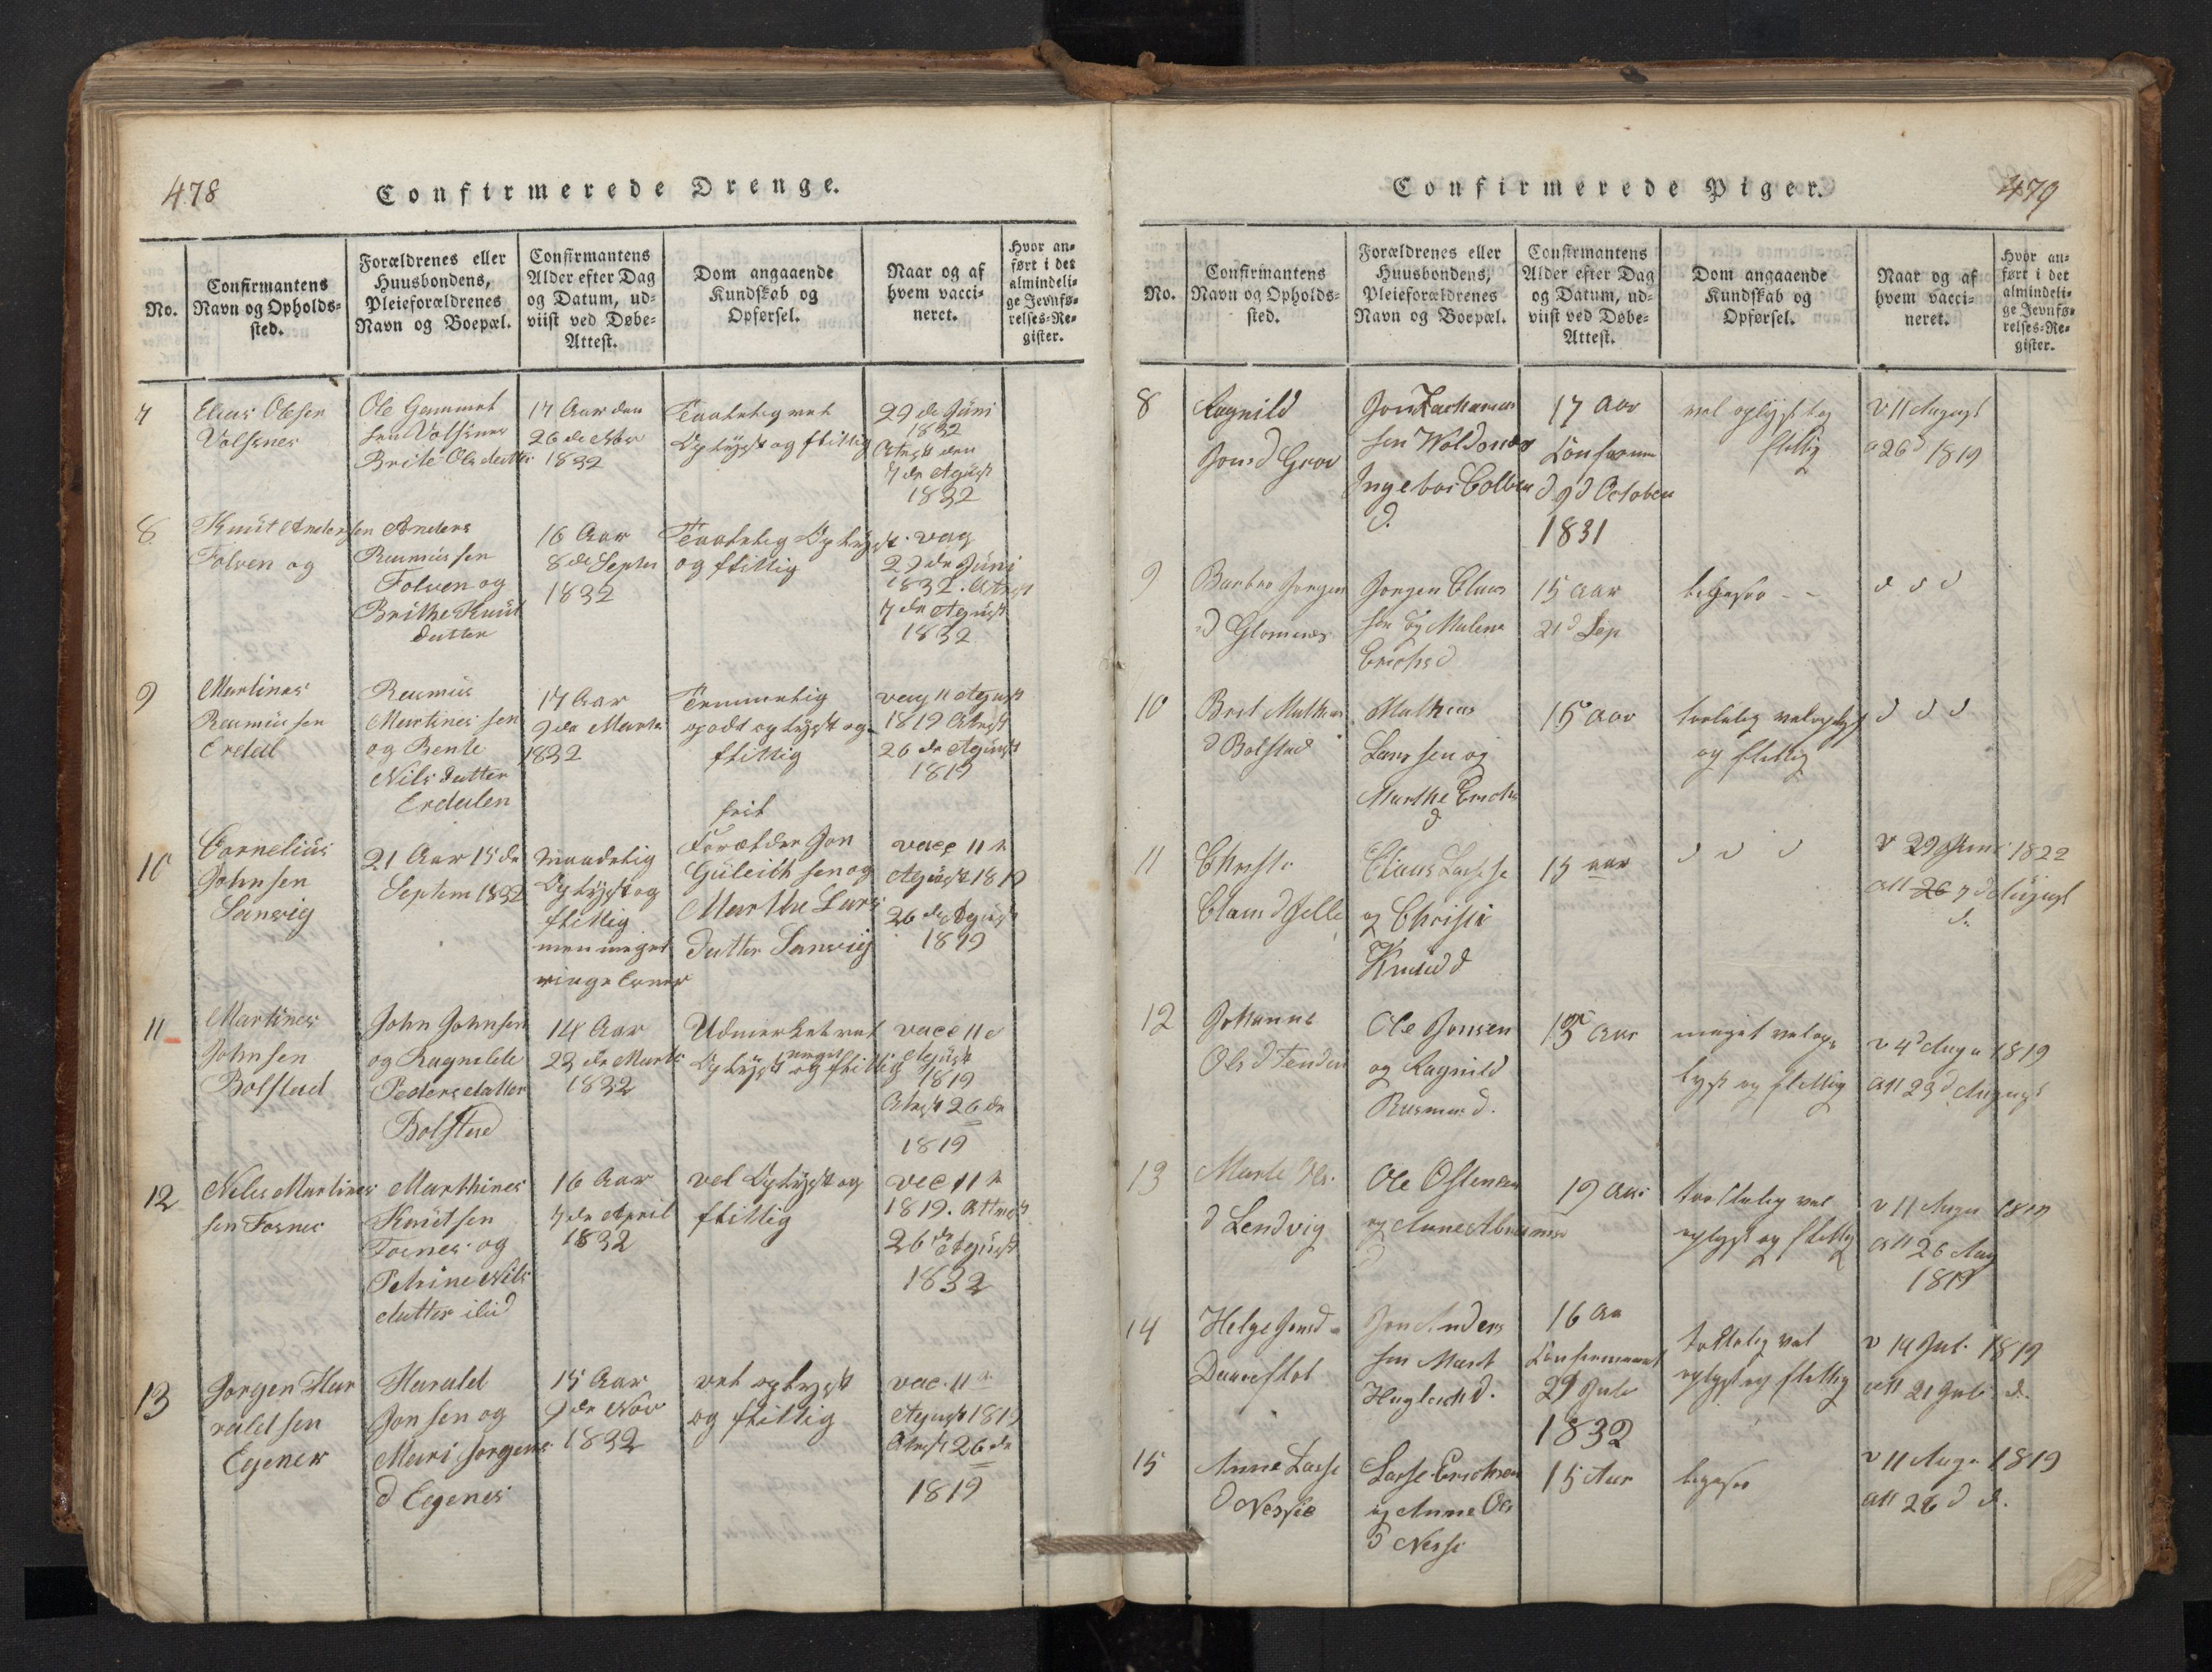 478
Confirmerede Drenge.
No.
Confirmantens
Navn og Opholds-
sted.
Forældrenes eller
Huusbondens,
Pleieforældrenes
Navn og Boepæl.
Confirmantens
Alder efter Dag
og Datum, ud-
viist ved Døbe-
Attest.
Dom angaaende
Kundskab og
Opførsel.
Naar og af
hvem vacci-
neret.
Hvor an-
ført i det
almindeli-
ge Jevnfø-
relses-Re-
gister.
7
Elias Olesen
Volsnes
Ole Gammel
sen Volsnes
Brite Ols datter
17 Aar den
26 de
1832
Taalelig vel
Oplÿst og flittig
29 de Jüni
1832
Atest den
7 de Agüst
1832
8
Knüt Andersen
Folven og
Anders
Rasmüssen
Folven og
Brithe Knüt
datter
16 Aar
8 de Septer
1832
Taalelig Oplÿst
og flittig
vag
29 de Jüni
1832. Atest
7 de Agüst
1832
9
Martines
Rasmüssen
Erdal
Rasmüs
Martines sen
og Bente
Nils datter
Erdalen
17 Aar
9 de Marts
1832
Temmelig
godt oplÿst og
flittig
vag 11 Agust
1819 Atest
26 de Agüst
1819
10
Cornelius
Johnsen
Sanvig
21 Aar 15 de
Septem 1832
maadelig
Oplÿst og
flittig
men meget
ringe Evner
Forælder Jon
Güleich sen og
Marthe Lars
datter Sanvig
vacc 11 de
Agüst 1819
26 de Agust
1819
11
Martines
Johnsen
Bolstad
John Johnsen
og Ragnilde
Peders datter
Bolstad
14 Aar
23 de Marts
1832
Udmerket vel
Oplÿst og meget flittig
vacc 11 d
Agüst
1819
Atest 26 de
1819
12
Nils Martines
sen Fosnes
Marthines
Knütsen
Fosnes og
Petrine Nils
datter ibid
16 Aar
7 de April
1832
vel Oplÿst og
flittig
vcc 11 de
1819. Attest
26 de Agüst
1832
13
Jørgen Har
ald sen
Egenes
Harald
Jonsen og
Mari Jørgens
d Egenes
15 Aar
9 de Nov
1832
vel oplyst
og flittig
vac. 11 de
Agust 1819
Atest 26 de
1819
479
Confirmerede Piger.
No.
Confirmantens
Navn og Opholds-
sted.
Forældrenes eller
Huusbondens,
Pleieforældrenes
Navn og Boepæl.
Confirmantens
Alder efter Dag
og Datum, ud-
viist ved Døbe-
Attest.
Dom angaaende
Kundskab og
Opførsel.
Naar og af
hvem vacci-
neret.
Hvor an-
ført i det
almindeli-
ge Jevnfø-
relses-Re-
gister.
8
Ragnild
Jons d Grov
Jon Zacharias
sen
Ingebor Colben
d.
17 Aar
d 9 d October
1831
vel oplyst og
flittig
v 11 August
a 26 d 1819
9
Barbro Jørgen
d Glomnes
Jørgen Claus
sen og Malene
Erichs d
15 Aar
21 d Sep
ligesaa - -
d d d
10
Brit Mathias
d Bolstad
Mathias
Larssen og
Marthe Erichs
d
15 Aar
taalelig veloplyst
og flittig
d d d
11
Christi
Claus d Jelle
Claus Lasse
og Christi
Knud d
15 aar
d d d
v 29 Juni 1822
att 7 d August
d.
12
Johanne
Ols d Tenden
Ole Jonsen
og Ragnild
Rasmus d.
Aar
meget velop-
lyst og flittig
v 4 d Augu 1819
att 23 d August
13
Marte Ols
d Lendvig
Ole Ostensen
og Anne Abra
d
19 Aar
taalelig vel
oplyst og flittig
v 11 Augu 1819
att 26 Aug
1819
14
Helge Jons d
Daaeflot
Jon Anders
sen Marit
Huglich d.
16 Aa
29 Jule
1832
taalelig vel
oplyst og flittig
v 14 Jul. 1819
att 21 Jul d.
15
Anne Lasse
d Nessie
Lasse Erichsen
og Anne Ols
d Nessi
15 Aar
ligesaa
v 11 Augu 1819
att 26 d d.